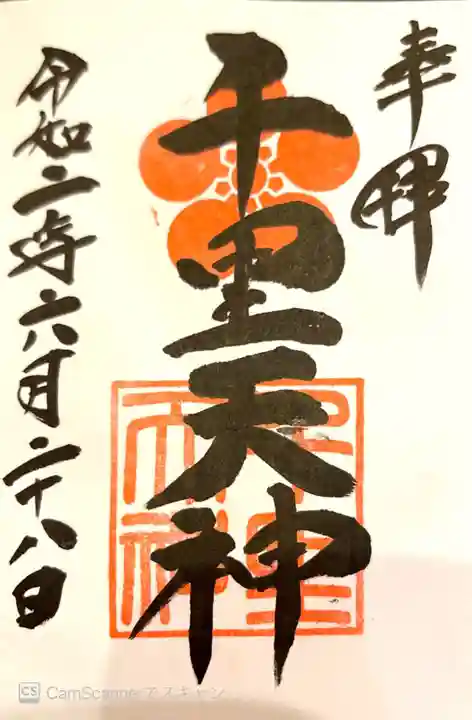 奉拝
千里天神
令和二年六月二十八日
CS CamScannerでスキャン